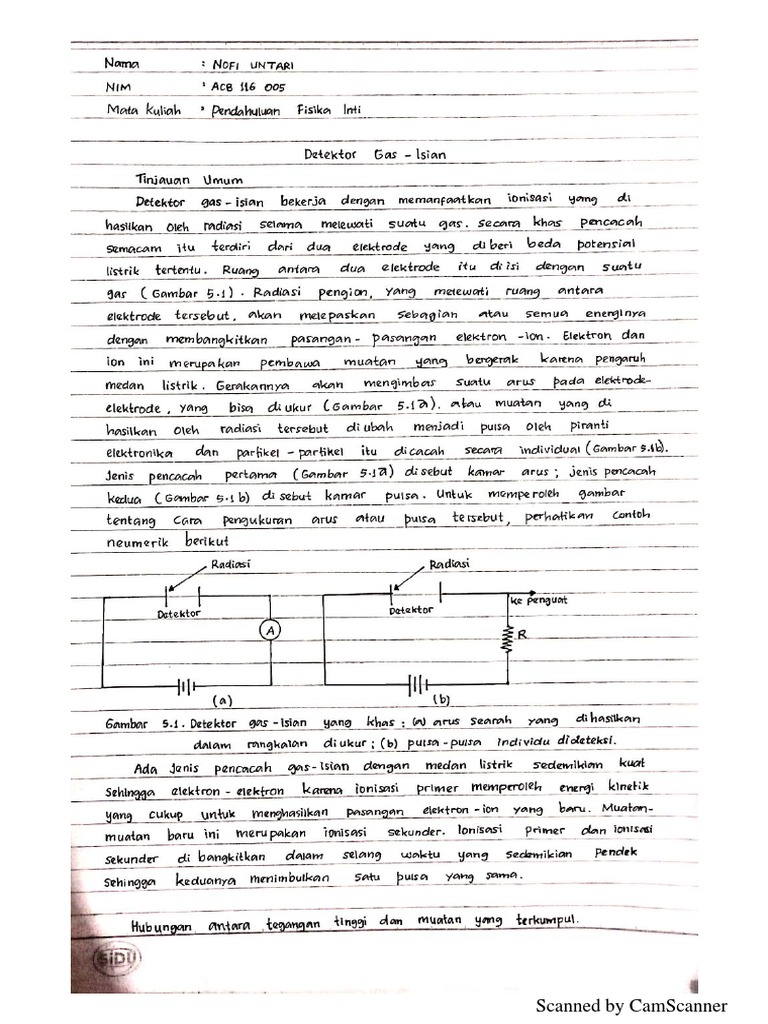 Nama : NOFI UNTARI
NIM : ACB 116 005
Mata Kuliah : Pendahuluan Fisika Inti
Detektor Gas-Isian
Tinjauan Umum
Detektor gas-isian bekerja dengan memanfaatkan ionisasi yang di
hasilkan oleh radiasi selama melewati suatu gas. Secara khas pencacah
semacam itu terdiri dari dua elektrode yang diberi beda potensial
listrik tertentu. Ruang antara dua elektrode itu diisi dengan suatu
gas (Gambar 5.1). Radiasi pengion, yang melewati ruang antara
elektrode tersebut, akan melepaskan sebagian atau semua energinya
dengan membangkitkan pasangan-pasangan elektron-ion. Elektron dan
ion ini merupakan pembawa muatan yang bergerak karena pengaruh
medan listrik. Gerakannya akan mengimbas suatu arus pada elektrode-
elektrode, yang bisa diukur (Gambar 5.1a). atau muatan yang di
hasilkan oleh radiasi tersebut diubah menjadi pulsa oleh piranti
elektronika dan partikel-partikel itu dicacah secara individual (Gambar 5.1b).
Jenis pencacah pertama (Gambar 5.1a) disebut kamar arus; jenis pencacah
kedua (Gambar 5.1b) disebut kamar pulsa. Untuk memperoleh gambar
tentang cara pengukuran arus atau pulsa tersebut, perhatikan contoh
neumerik berikut
Radiasi
Radiasi
Detektor
Detektor
ke penguat
A
R
(a)
(b)
Gambar 5.1. Detektor gas-isian yang khas: (a) arus searah yang dihasilkan
dalam rangkaian diukur; (b) pulsa-pulsa individu dideteksi.
Ada jenis pencacah gas-isian dengan medan listrik sedemikian kuat
sehingga elektron-elektron karena ionisasi primer memperoleh energi kinetik
yang cukup untuk menghasilkan pasangan elektron-ion yang baru. Muatan-
muatan baru ini merupakan ionisasi sekunder. Ionisasi primer dan ionisasi
sekunder dibangkitkan dalam selang waktu yang sedemikian pendek
sehingga keduanya menimbulkan satu pulsa yang sama.
Hubungan antara tegangan tinggi dan muatan yang terkumpul.
SIDU
Scanned by CamScanner